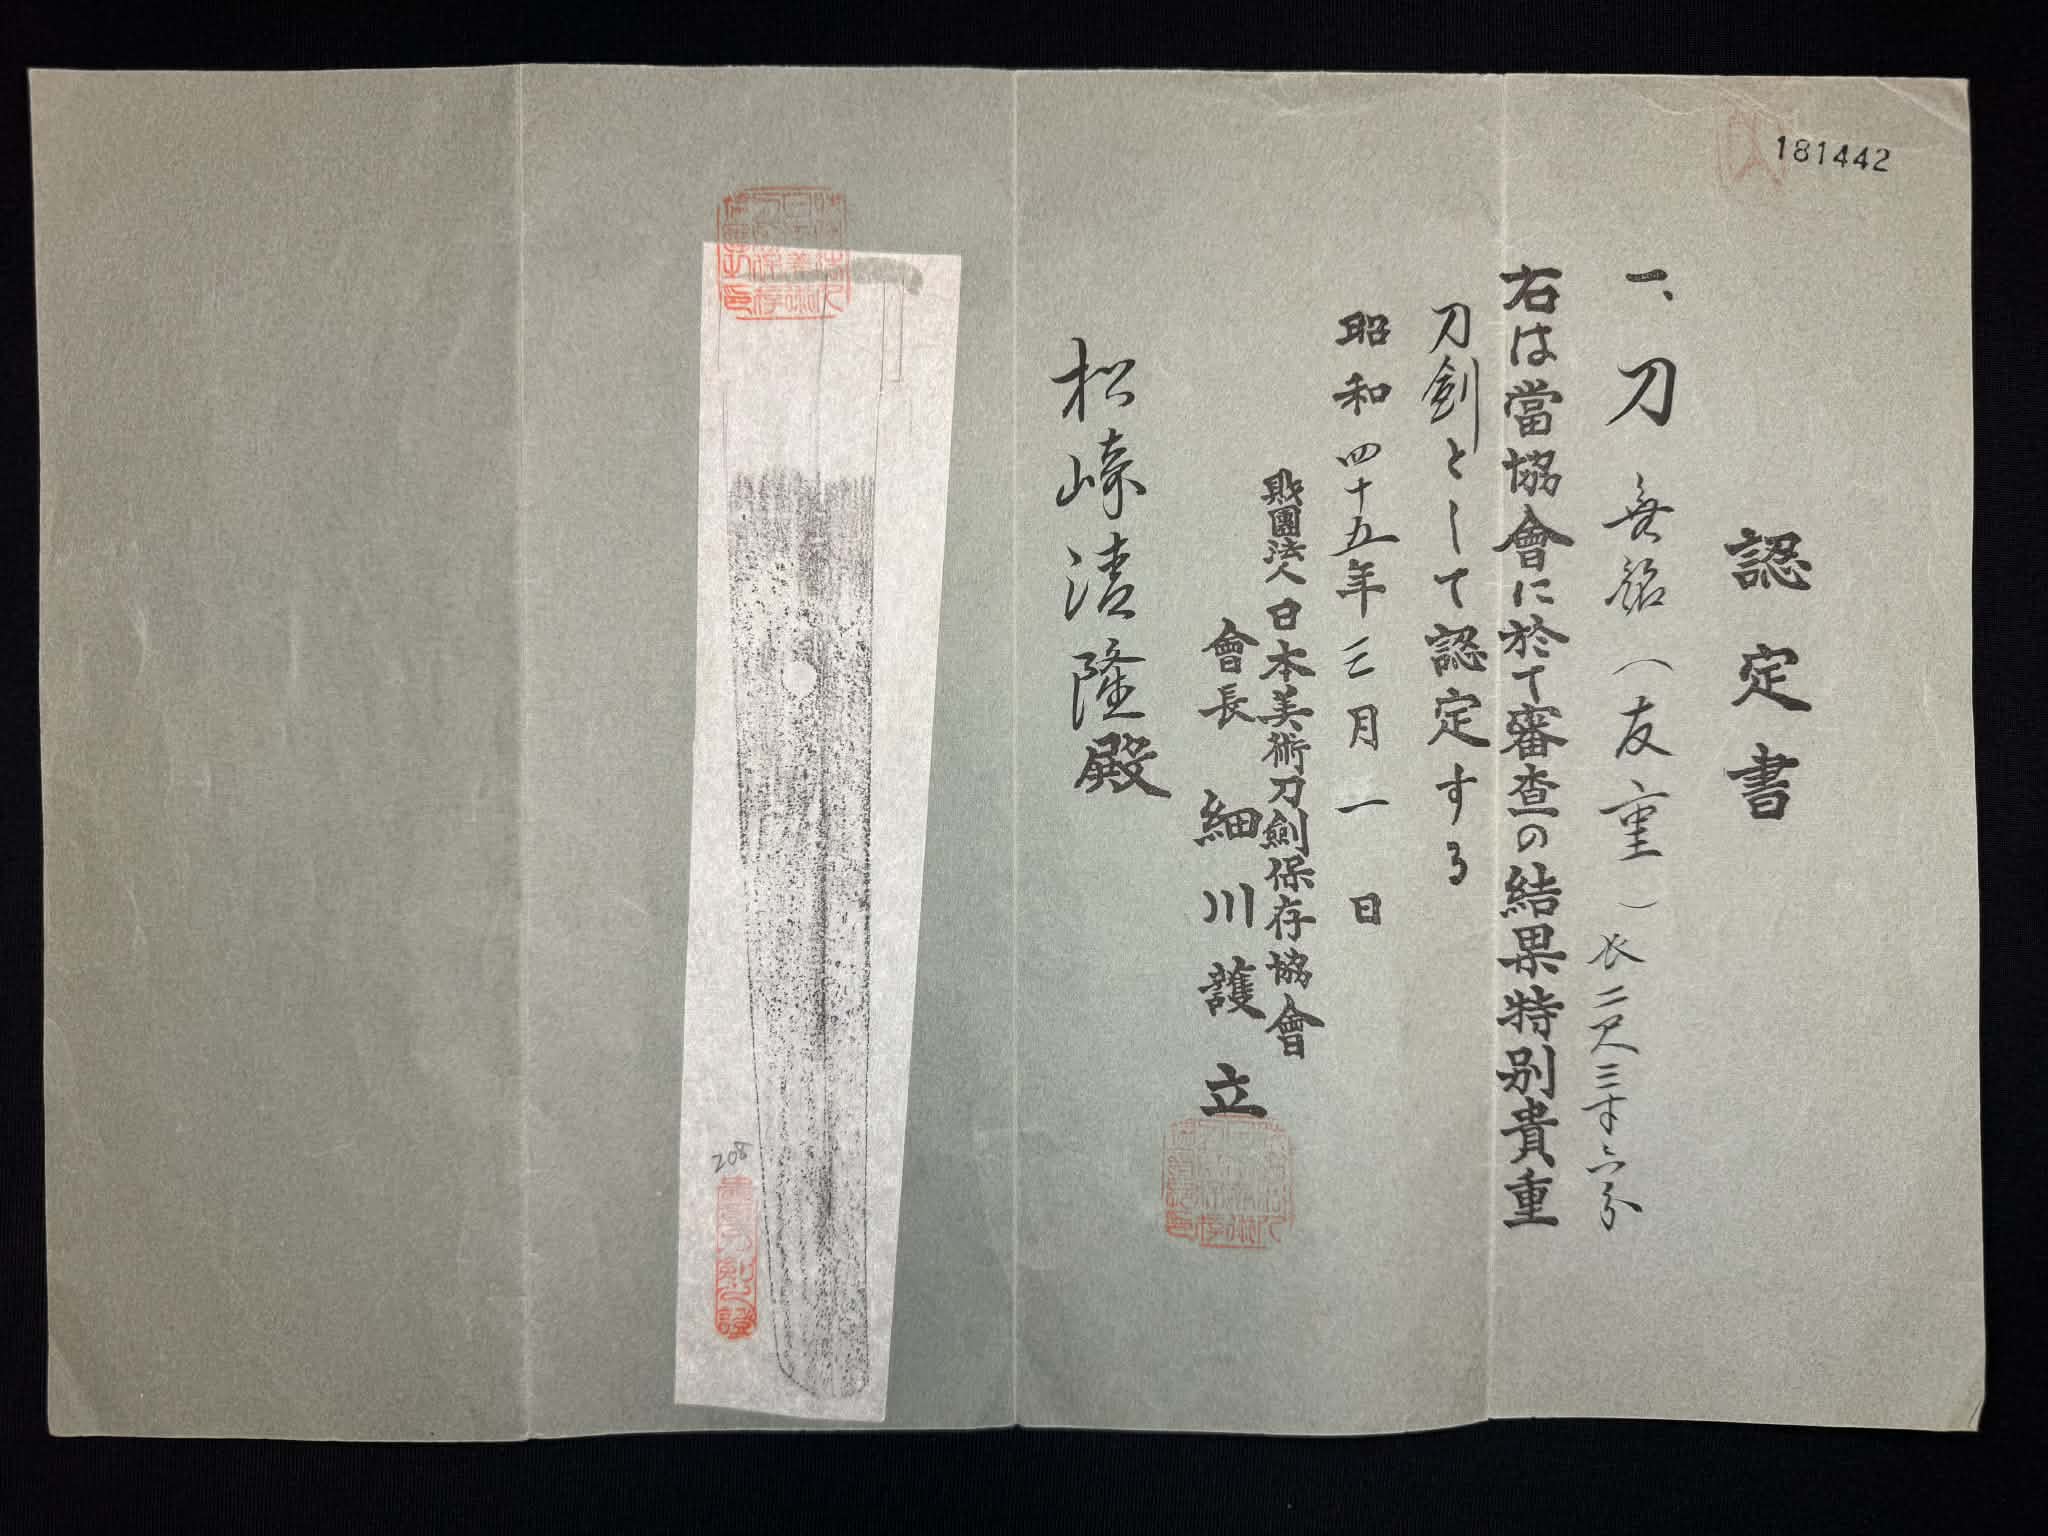 181442
認定書
一、刀 無銘(友重)長二尺三寸六分
右は當協會に於て審査の結果特別貴重
刀劍として認定する
昭和四十五年三月一日
財團法人日本美術刀劍保存協會
會長 細川護立
松嶂清隆殿
208